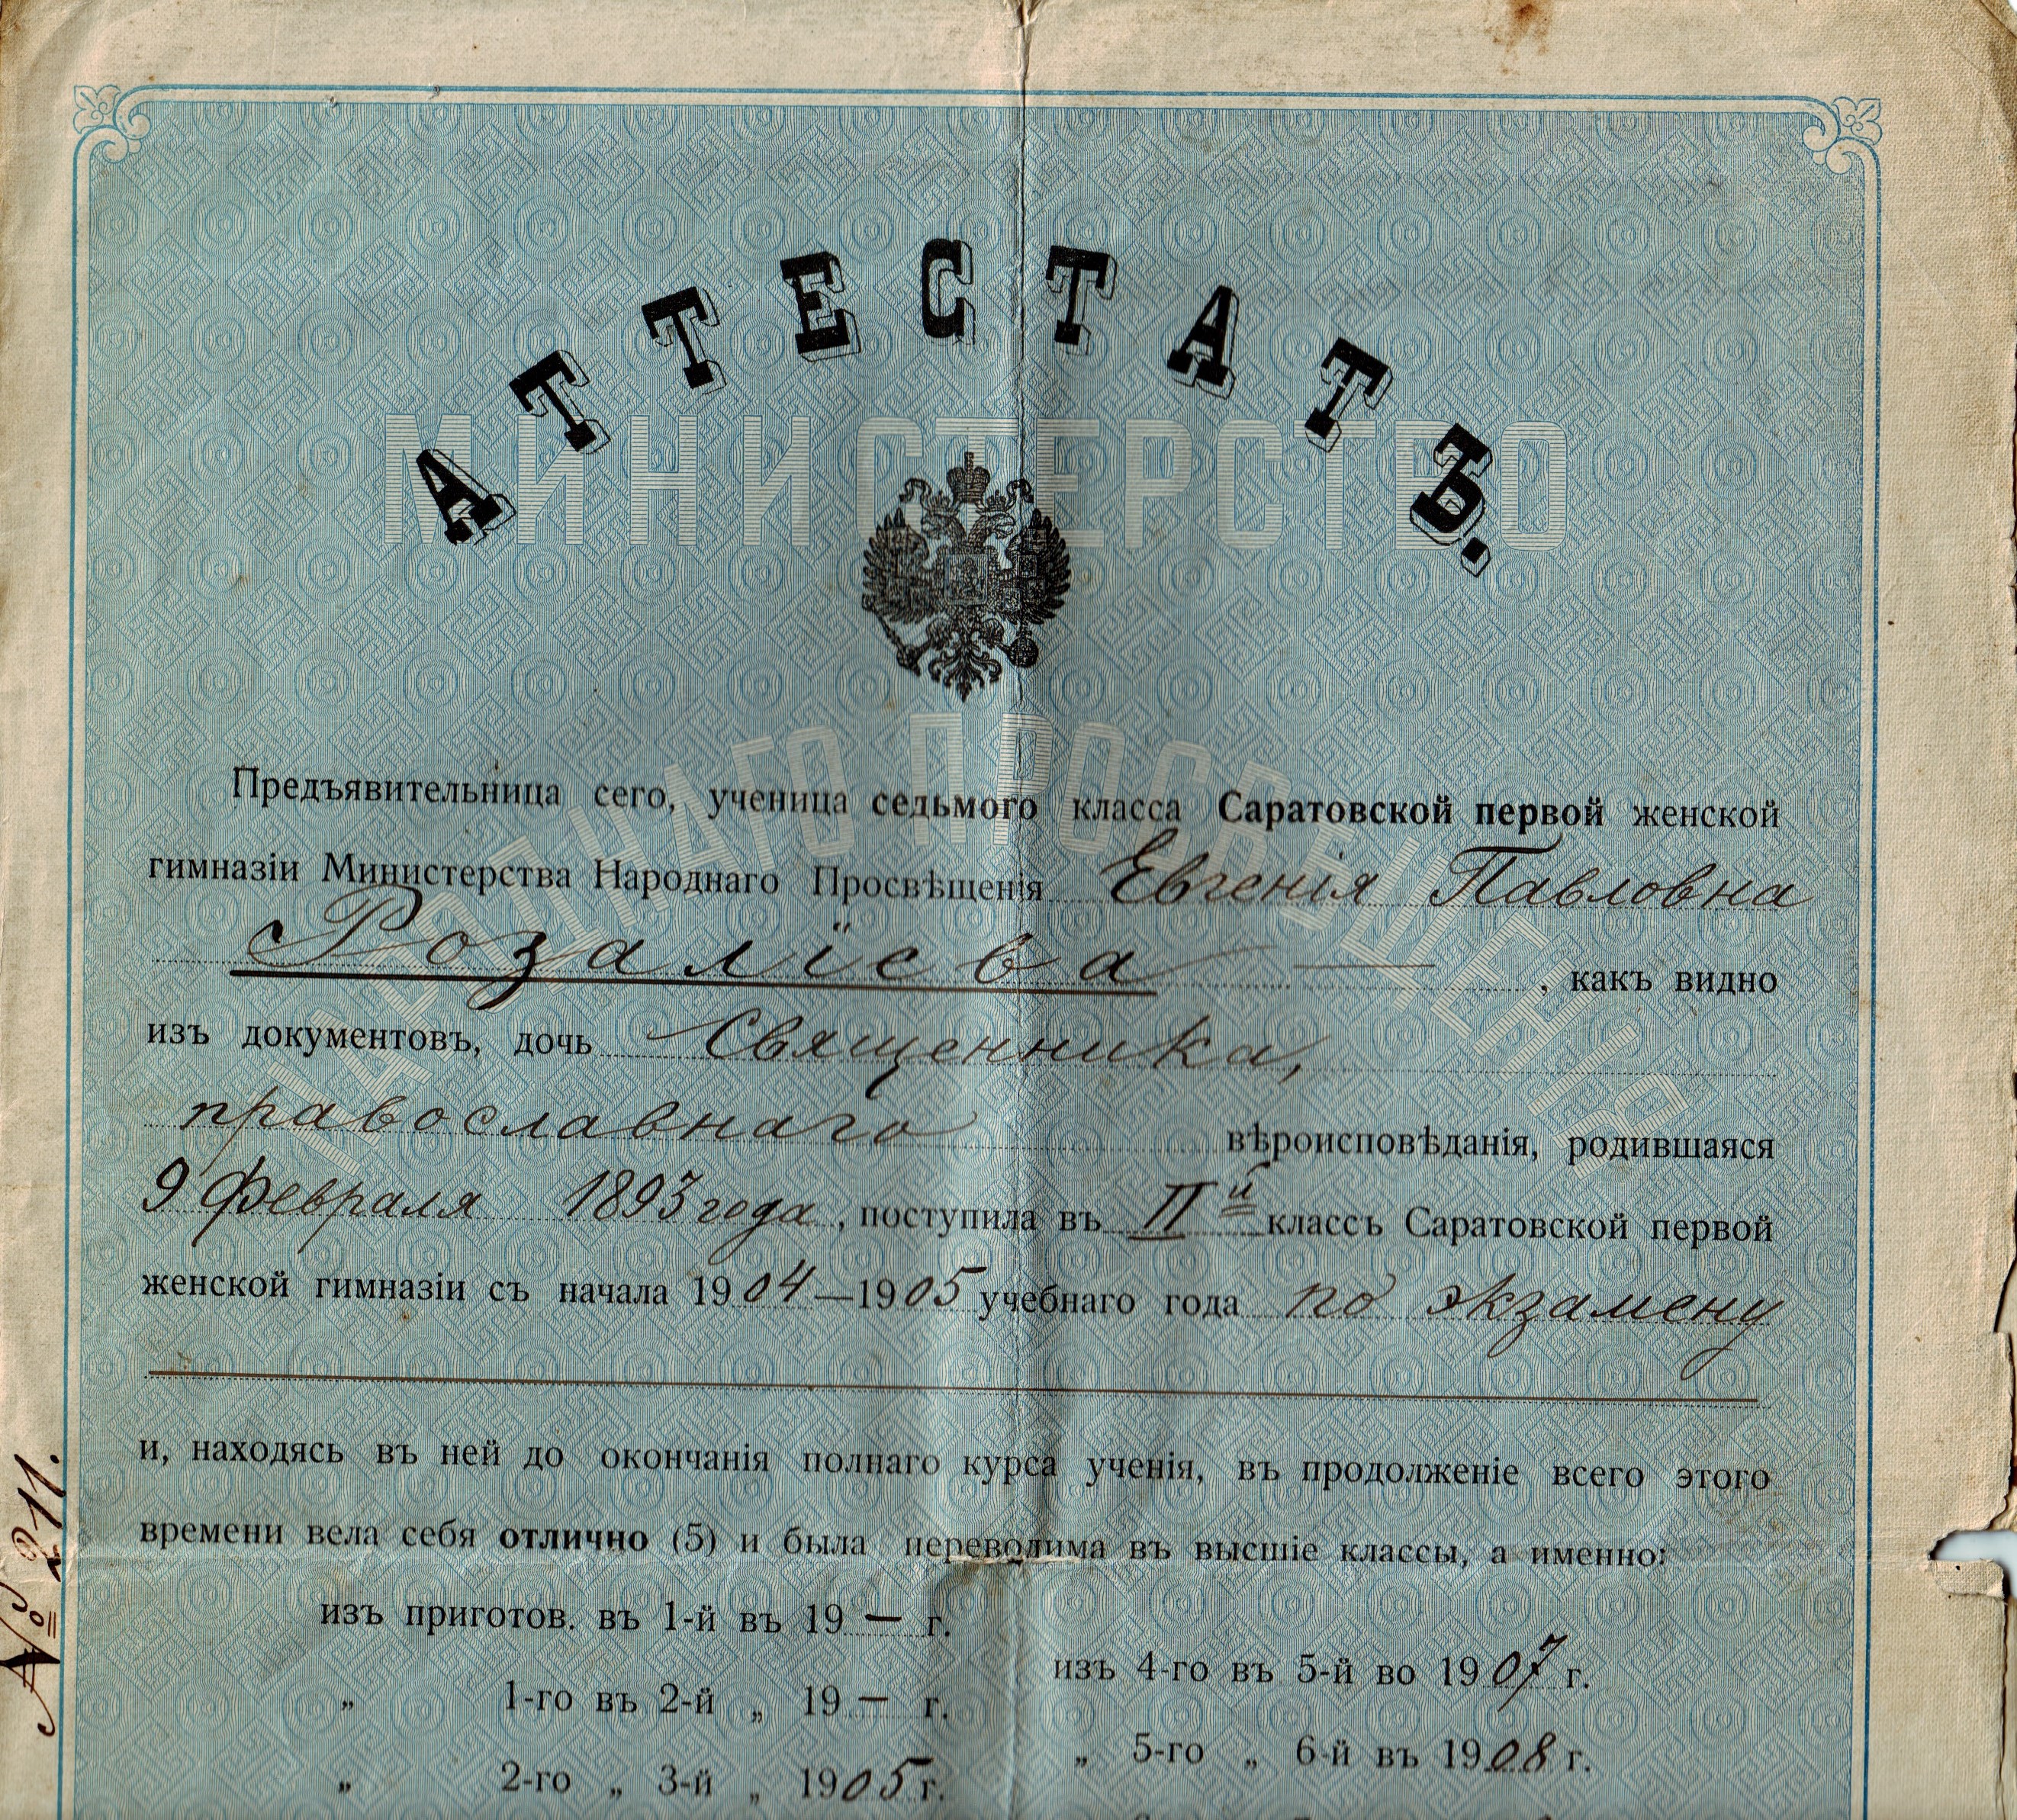 АТТЕСТАТЪ.
МИНИСТЕРСТВО
НАРОДНАГО ПРОСВѢЩЕНІЯ
Предъявительница сего, ученица седьмого класса Саратовской первой женской
гимназіи Министерства Народнаго Просвѣщенія Евгенія Павловна
Розаліева , какъ видно
изъ документовъ, дочь Священника,
православнаго вѣроисповѣданія, родившаяся
9 Февраля 1893 года, поступила въ IIй классъ Саратовской первой
женской гимназіи съ начала 1904—1905 учебнаго года по экзамену
и, находясь въ ней до окончанія полнаго курса ученія, въ продолженіе всего этого
времени вела себя отлично (5) и была переводима въ высшіе классы, а именно:
изъ приготов. въ 1-й въ 19 — г.
„ 1-го въ 2-й „ 19 — г.
„ 2-го „ 3-й „ 1905 г.
изъ 4-го въ 5-й во 1907 г.
„ 5-го „ 6-й въ 1908 г.
№ 211.